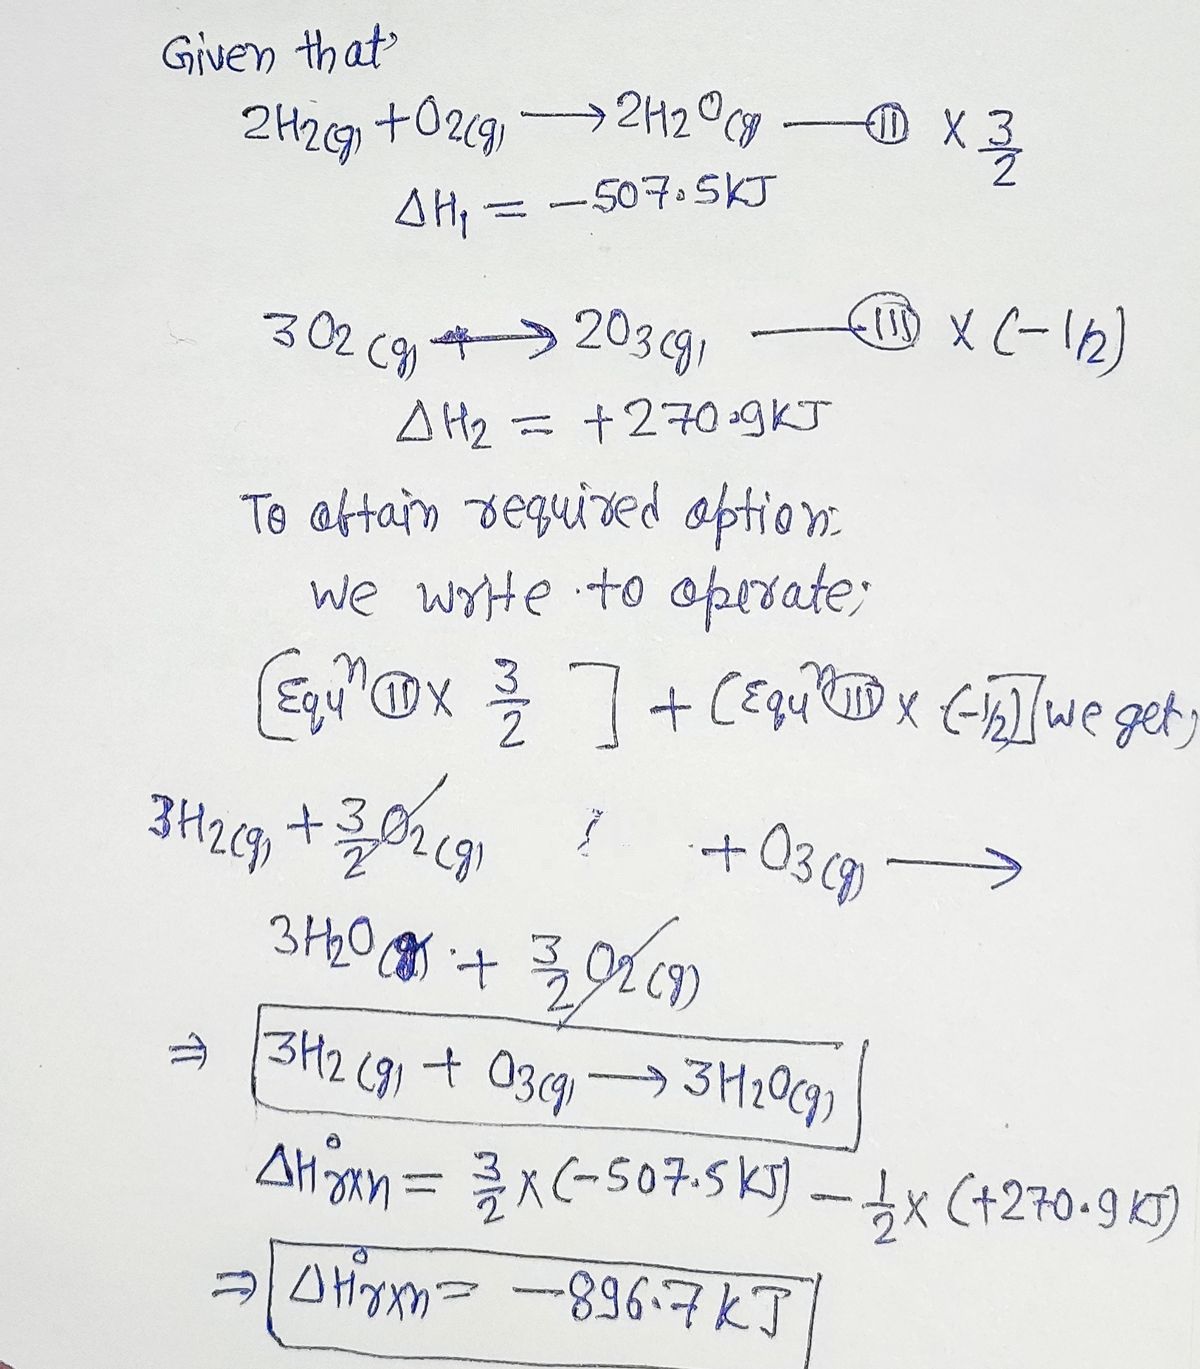 Given that
2H2(g) + O2(g) ⟶ 2H2O(g) —— (II) × 3/2
ΔH1 = -507.5KJ
3O2(g) ⟶ 2O3(g) —— (III) × (-1/2)
ΔH2 = +270.9KJ
To obtain required option:
we write to operate;
[Equn (II) × 3/2 ] + [Equn (III) × (-1/2)] we get;
3H2(g) + 3/2 O2(g) + O3(g) ⟶
3H2O(g) + 3/2 O2(g)
⇒ 3H2(g) + O3(g) ⟶ 3H2O(g)
ΔH°rxn = 3/2 × (-507.5 KJ) - 1/2 × (+270.9 KJ)
⇒ ΔH°rxn = -896.7 KJ